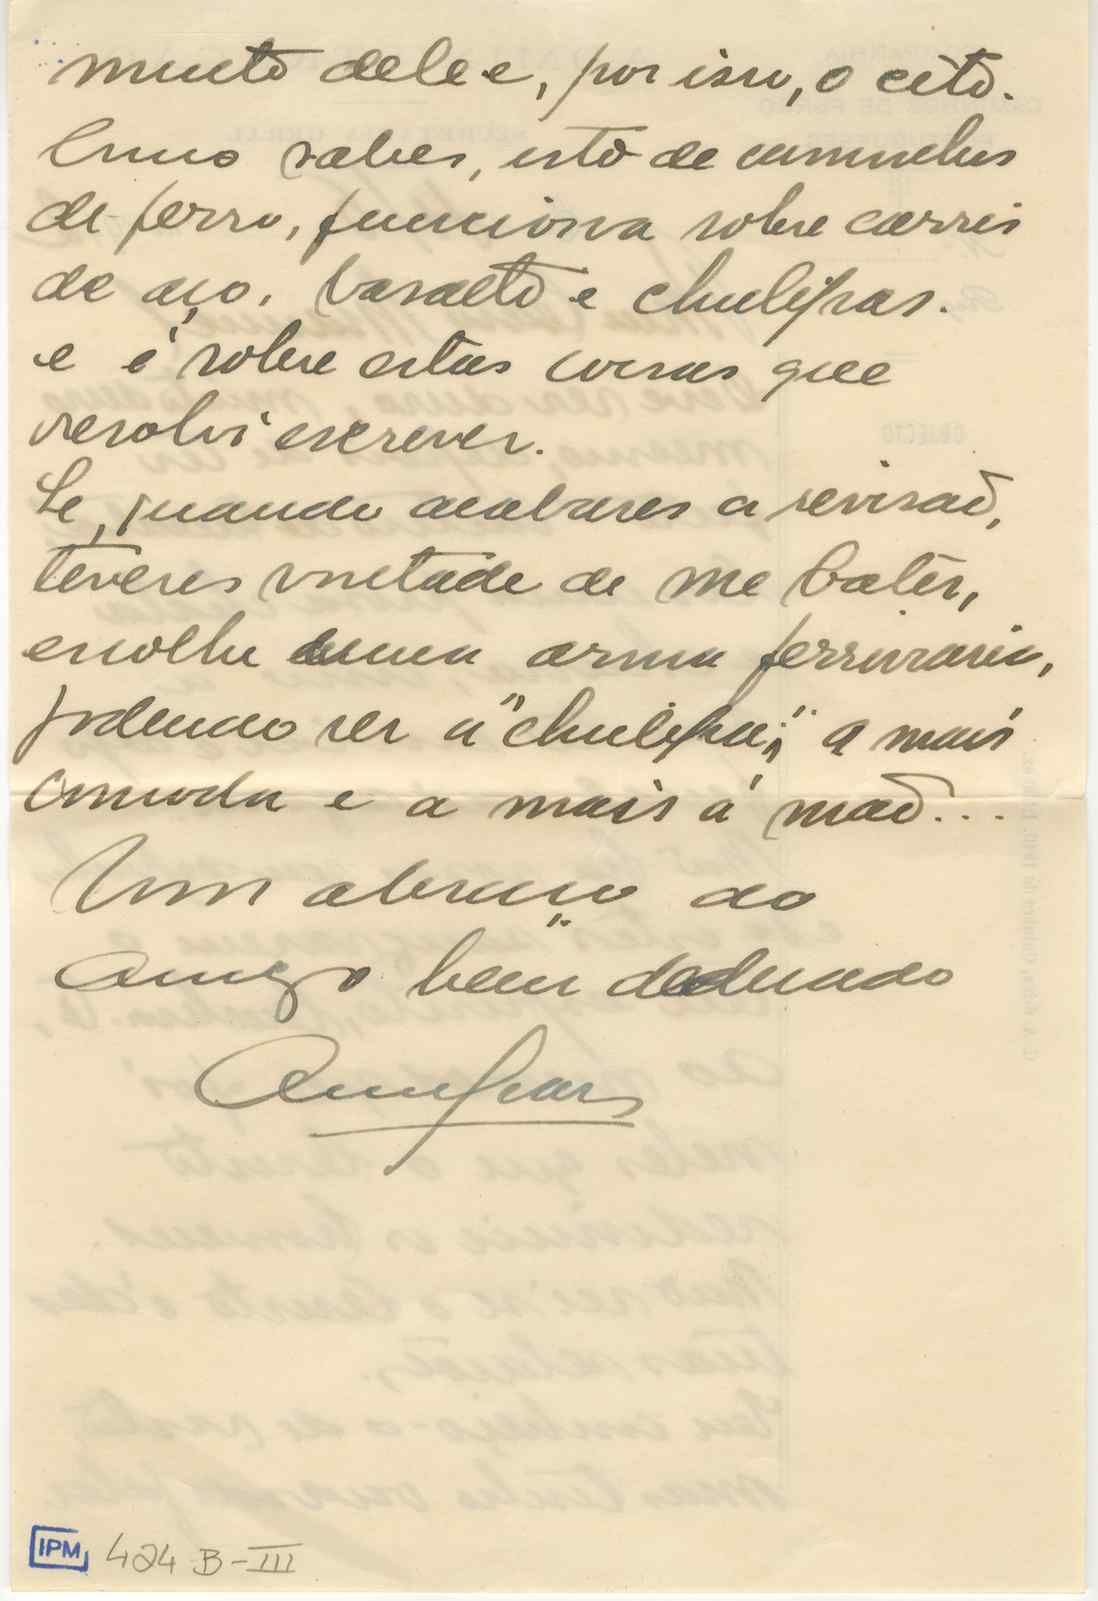 muito dele e, por isso, o cito.
Como sabes, isto de caminhos
de ferro, funciona sobre carris
de aço, basalto e chulipas.
e é sobre estas coisas que
resolvi escrever.
Se, quando acabares a revisão,
tiveres vontade de me bater,
escolhe uma arma ferroviaria,
podendo ser a "chulipa", a mais
comoda e a mais á mão...
Um abraço do
amigo bem dedicado
IPM 424 B-III